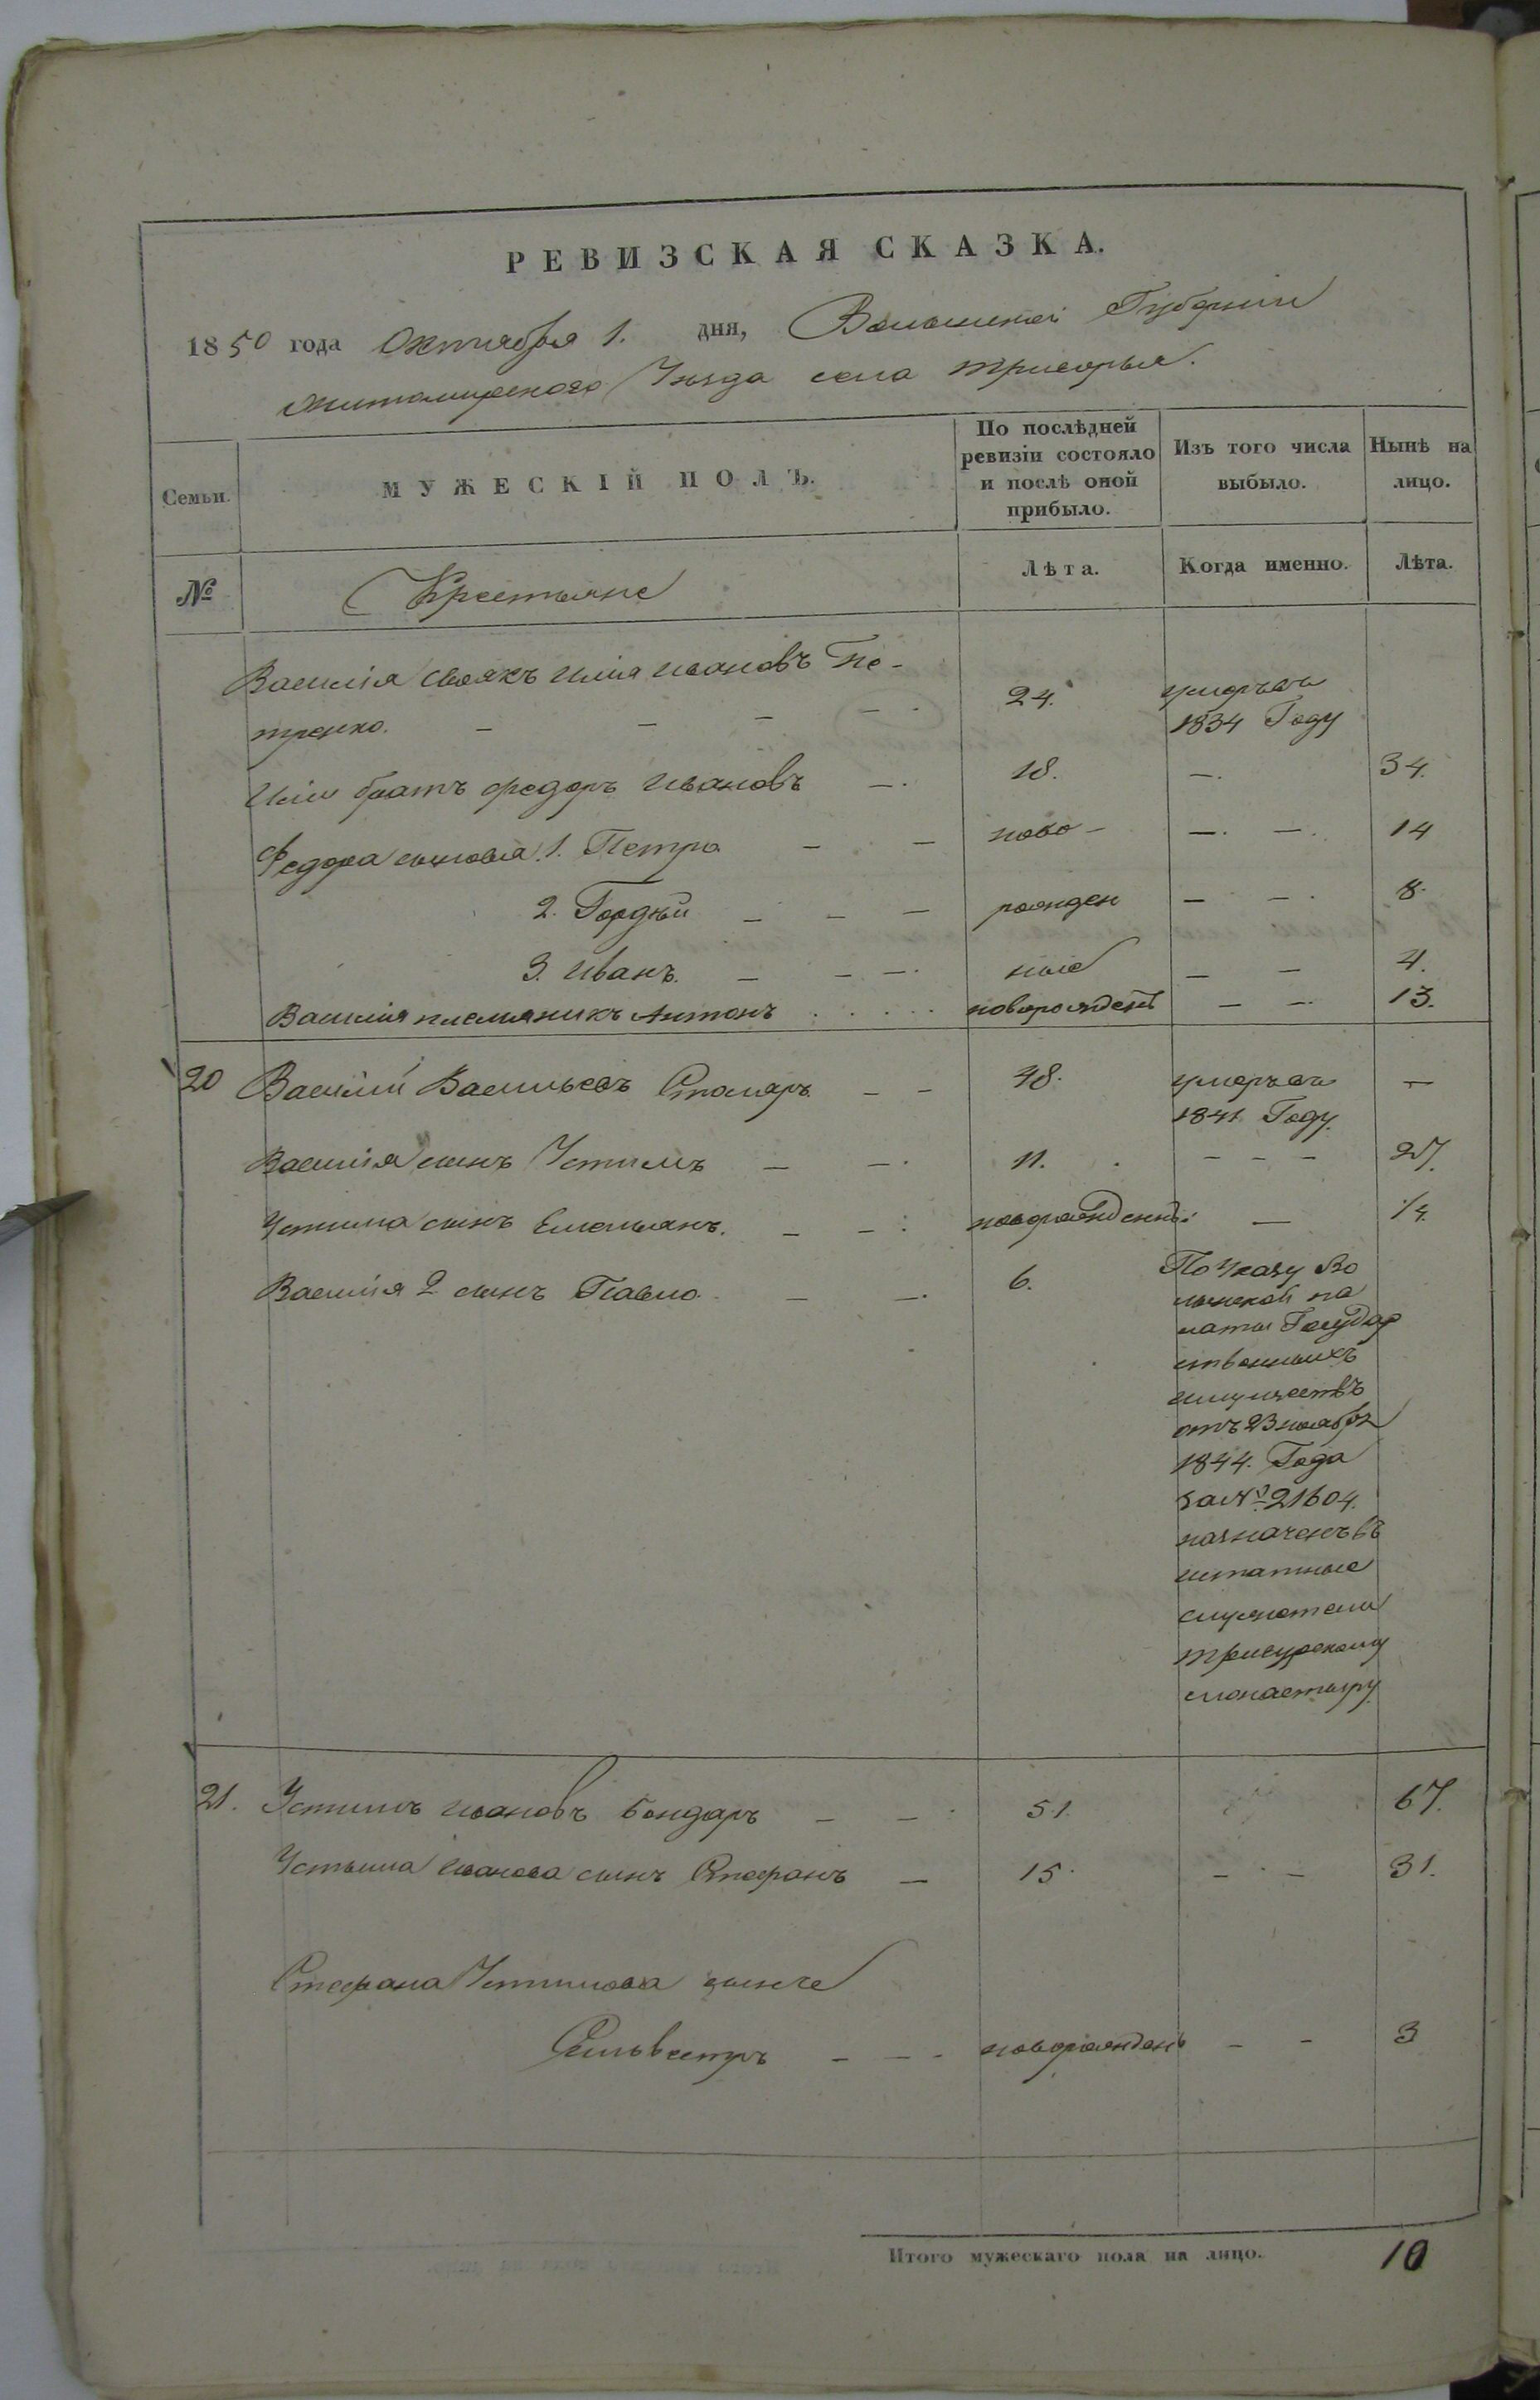 РЕВИЗСКАЯ СКАЗКА.
1850 года Октября 1. дня, Волынской Губернии
житомирского Уезда села трисорья.
Семьи. МУЖЕСКІЙ ПОЛЪ. По послѣдней ревизіи состояло и послѣ оной прибыло. Изъ того числа выбыло. Нынѣ на лицо.
№ Крестьяне Лѣта. Когда именно. Лѣта.
Василія своякъ илія ивановъ Пе-
тренко. — — — —. 24. умеръ въ 1834 Году
Иліи братъ федоръ ивановъ —. 18. —. 34.
Федора сыновья. 1. Петро — — ново- —. —. 14
2. Гордѣй — — — рожден — —. 8.
3. иванъ. — — —. ные — — 4.
Василія племяникъ Антонъ . . . . . новорожденъ — —. 13.
20 Василій Васильевъ Столяръ — — 48. умеръ въ 1841 Году. —
Василія сынъ Устимъ — —. 11. — — — 27.
Устима сынъ Емельянъ. — —: новорожденъ: — 1/4.
Василія 2 сынъ Павло. — —. 6. По Указу Во
лынской па
латы Государ
ственныхъ
имуществъ
отъ 23 ноября
1844. Года
за № 21604.
назначенъ въ
штатные
служители
трисурскому
монастыру.
21. Устимъ ивановъ бондаръ — — 51. 67.
Устыма иванова сынъ Стефанъ — 15. — — 31.
Стефана Устимова
Сильвестръ — — - новорожденъ — - 3
Итого мужескаго пола на лицо. 10